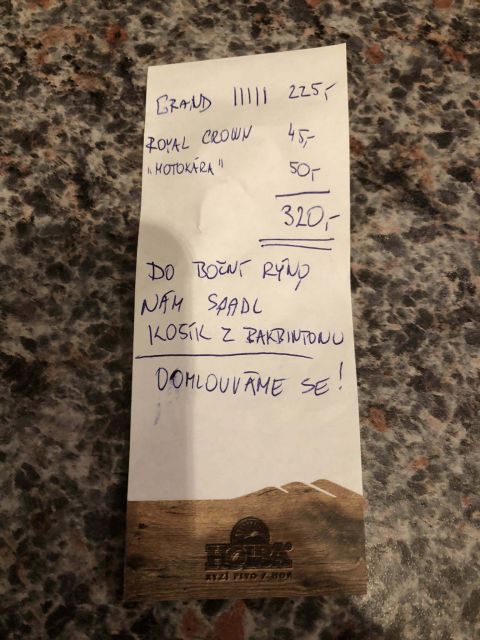 GRAND IIIII 225,-
ROYAL CROWN 45,-
"MOTOKÁRA" 50,-
320,-
DO BOČNÍ RÝNY
NÁM SPADL
KOŠÍK Z BAKBINTONU
DOMLOUVÁME SE!
HOLBA
RYZÍ PIVO Z HOR